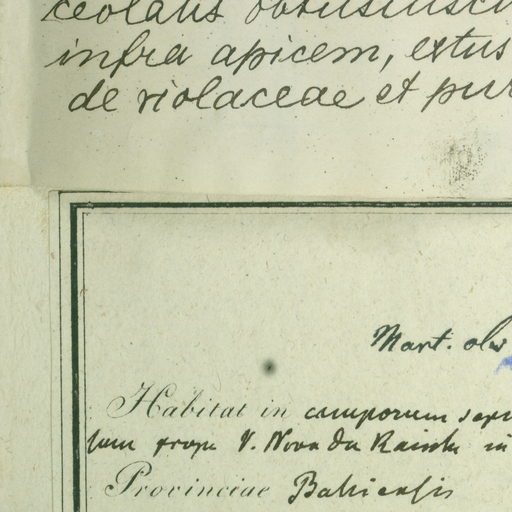 ceolatis obtusiusc
infra apicem, extus
de violaceae et pur
Mart. obs
Habitat in camporum sepi
prope V. Nova da Rainha in
Provinciae Bahiensis